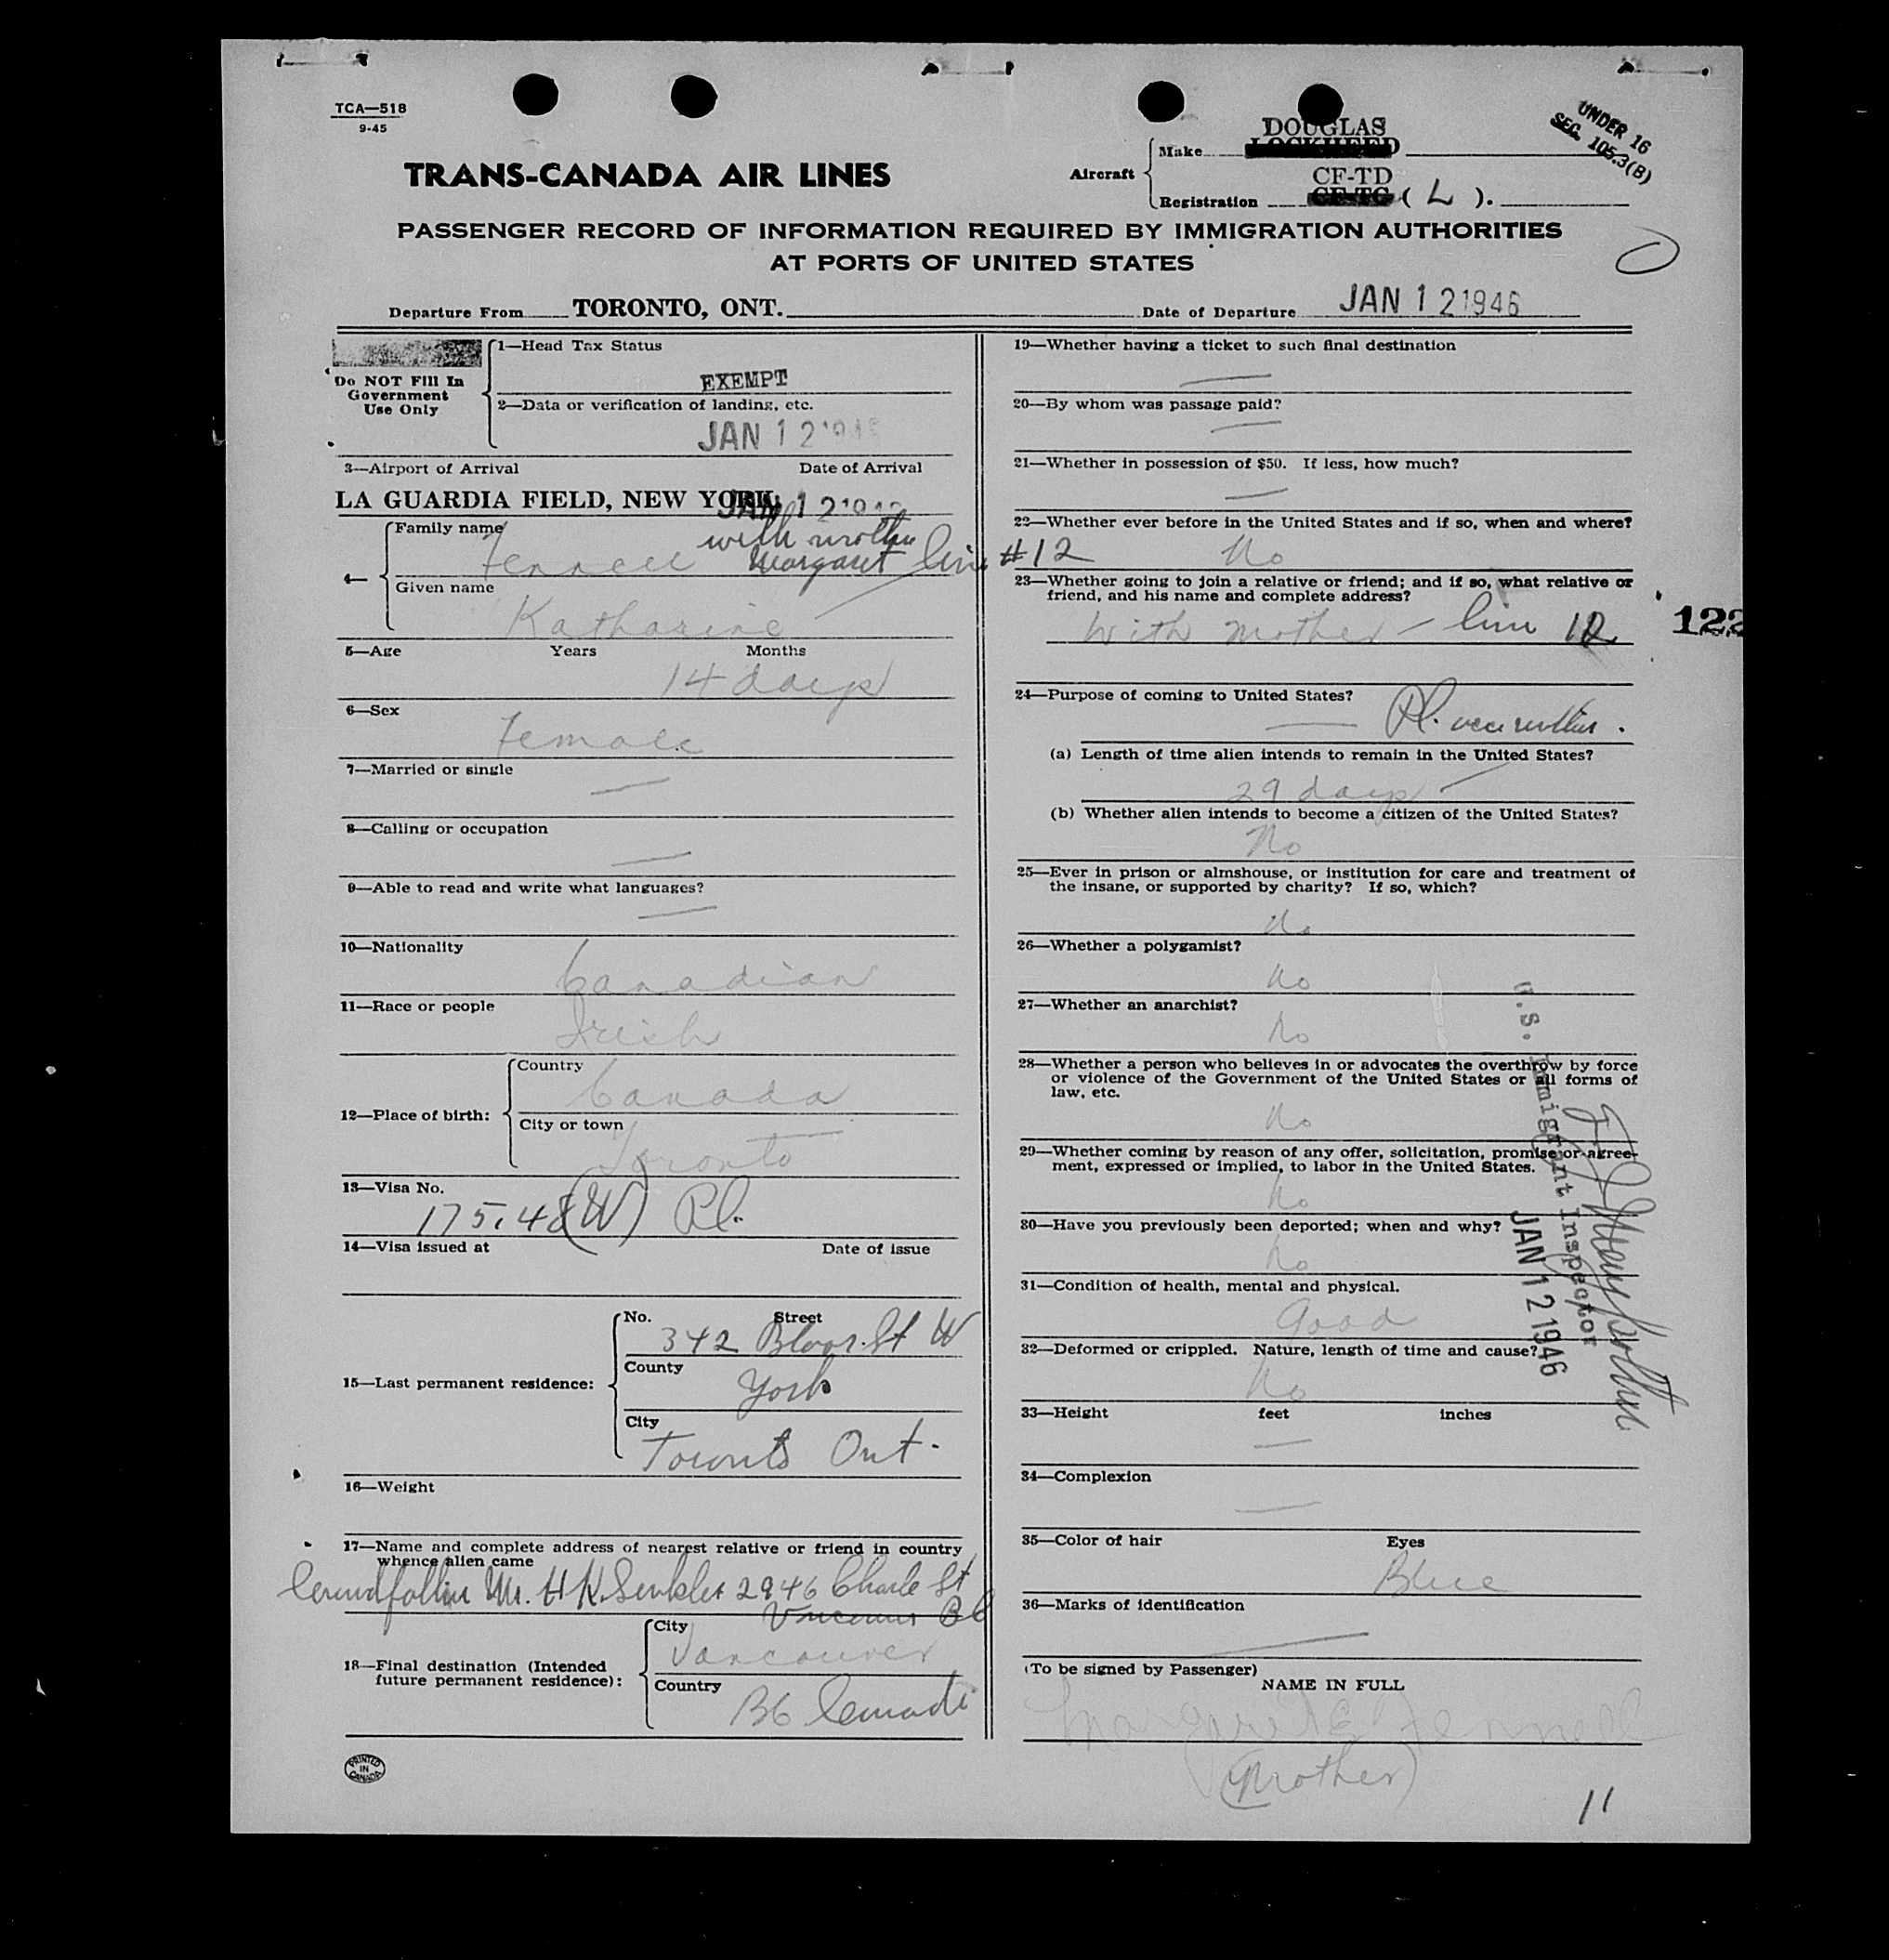 TCA—518
9-45
UNDER 16
SEC. 105.3(B)
TRANS-CANADA AIR LINES
Aircraft
Make
DOUGLAS
LOCKHEED
Registration
CF-TD
CF-TC
( L ).
PASSENGER RECORD OF INFORMATION REQUIRED BY IMMIGRATION AUTHORITIES
AT PORTS OF UNITED STATES
Departure From TORONTO, ONT.
Date of Departure JAN 12 1946
Do NOT Fill In
Government
Use Only
1—Head Tax Status
EXEMPT
2—Data or verification of landing, etc.
JAN 12 1946
3—Airport of Arrival Date of Arrival
LA GUARDIA FIELD, NEW YORK JAN 12
4—
Family name
Fennell with mother
Margaret line #12
Given name
Katharine
5—Age Years Months
14 days
6—Sex
Female
7—Married or single
—
8—Calling or occupation
—
9—Able to read and write what languages?
—
10—Nationality
Canadian
11—Race or people
Irish
12—Place of birth:
Country
Canada
City or town
Toronto
13—Visa No.
175.48 (W) Pl.
14—Visa issued at Date of issue
15—Last permanent residence:
No. Street
342 Bloor St W
County
York
City
Toronto Ont.
16—Weight
17—Name and complete address of nearest relative or friend in country
whence alien came
Mr. H K 2946 Charle St
Vancouver BC
18—Final destination (Intended
future permanent residence):
City
Vancouver
Country
BC Canada
PRINTED
IN
CANADA
19—Whether having a ticket to such final destination
—
20—By whom was passage paid?
—
21—Whether in possession of $50. If less, how much?
—
22—Whether ever before in the United States and if so, when and where?
No
23—Whether going to join a relative or friend; and if so, what relative or
friend, and his name and complete address?
With mother — line 12
122
24—Purpose of coming to United States?
— Pl.
(a) Length of time alien intends to remain in the United States?
29 days
(b) Whether alien intends to become a citizen of the United States?
No
25—Ever in prison or almshouse, or institution for care and treatment of
the insane, or supported by charity? If so, which?
No
26—Whether a polygamist?
No
27—Whether an anarchist?
No
28—Whether a person who believes in or advocates the overthrow by force
or violence of the Government of the United States or all forms of
law, etc.
No
29—Whether coming by reason of any offer, solicitation, promise or agree-
ment, expressed or implied, to labor in the United States.
No
30—Have you previously been deported; when and why?
No
31—Condition of health, mental and physical.
Good
32—Deformed or crippled. Nature, length of time and cause?
No
33—Height feet inches
—
34—Complexion
—
35—Color of hair Eyes
Blue
36—Marks of identification
—
U.S. Immigrant Inspector
JAN 12 1946
(To be signed by Passenger)
NAME IN FULL
Margaret E Fennell
(Mother)
11